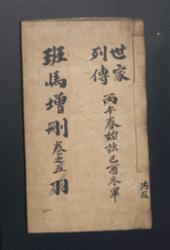 世家
列傳
丙午春始抄己酉冬畢
共五
班馬增刪 卷之五 羽